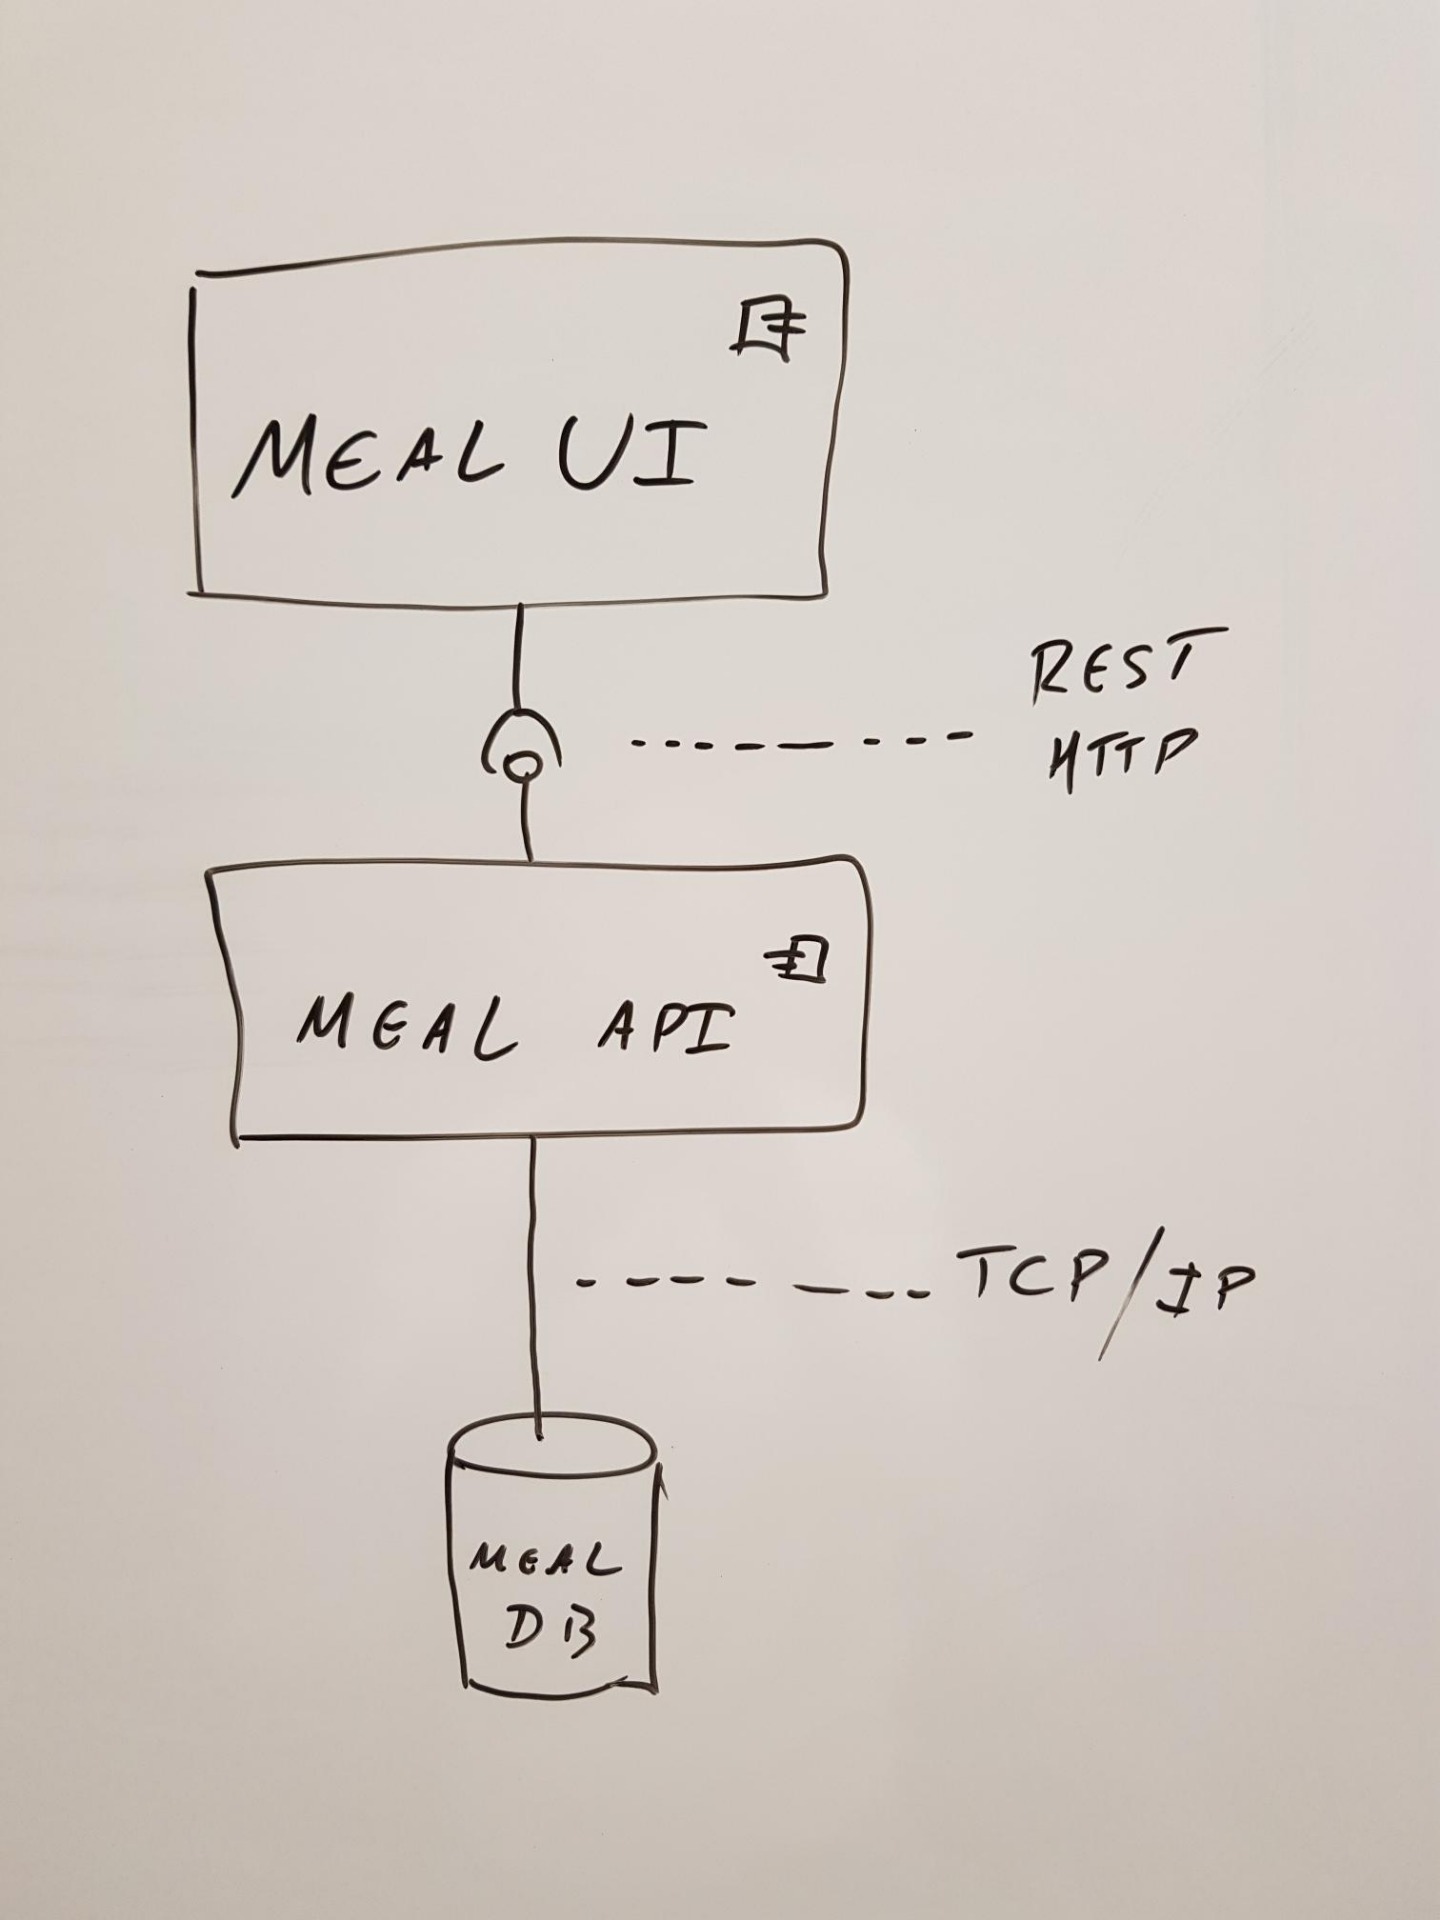 MEAL UI
REST
HTTP
MEAL API
TCP/IP
MEAL
DB